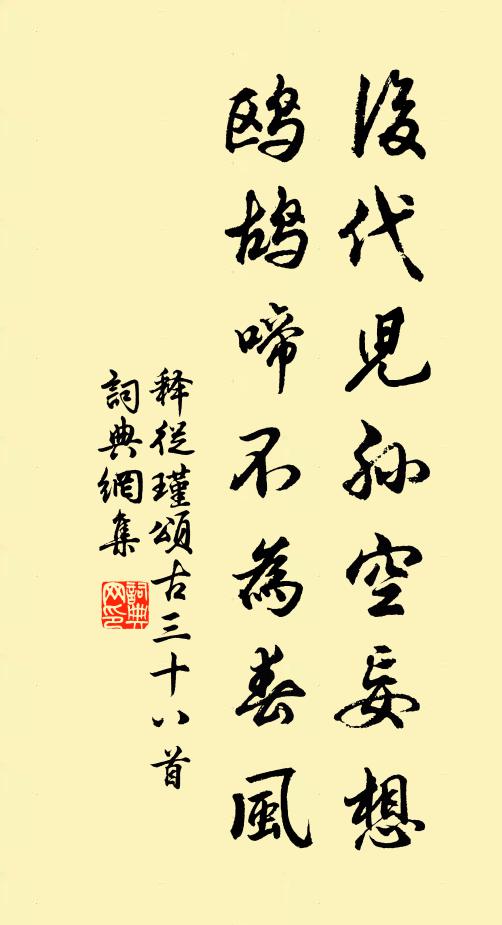 後代兒孫空妄想
鴎鴣啼不為春風
释從瑾頌古三十八首
詞典網集
詞典网印